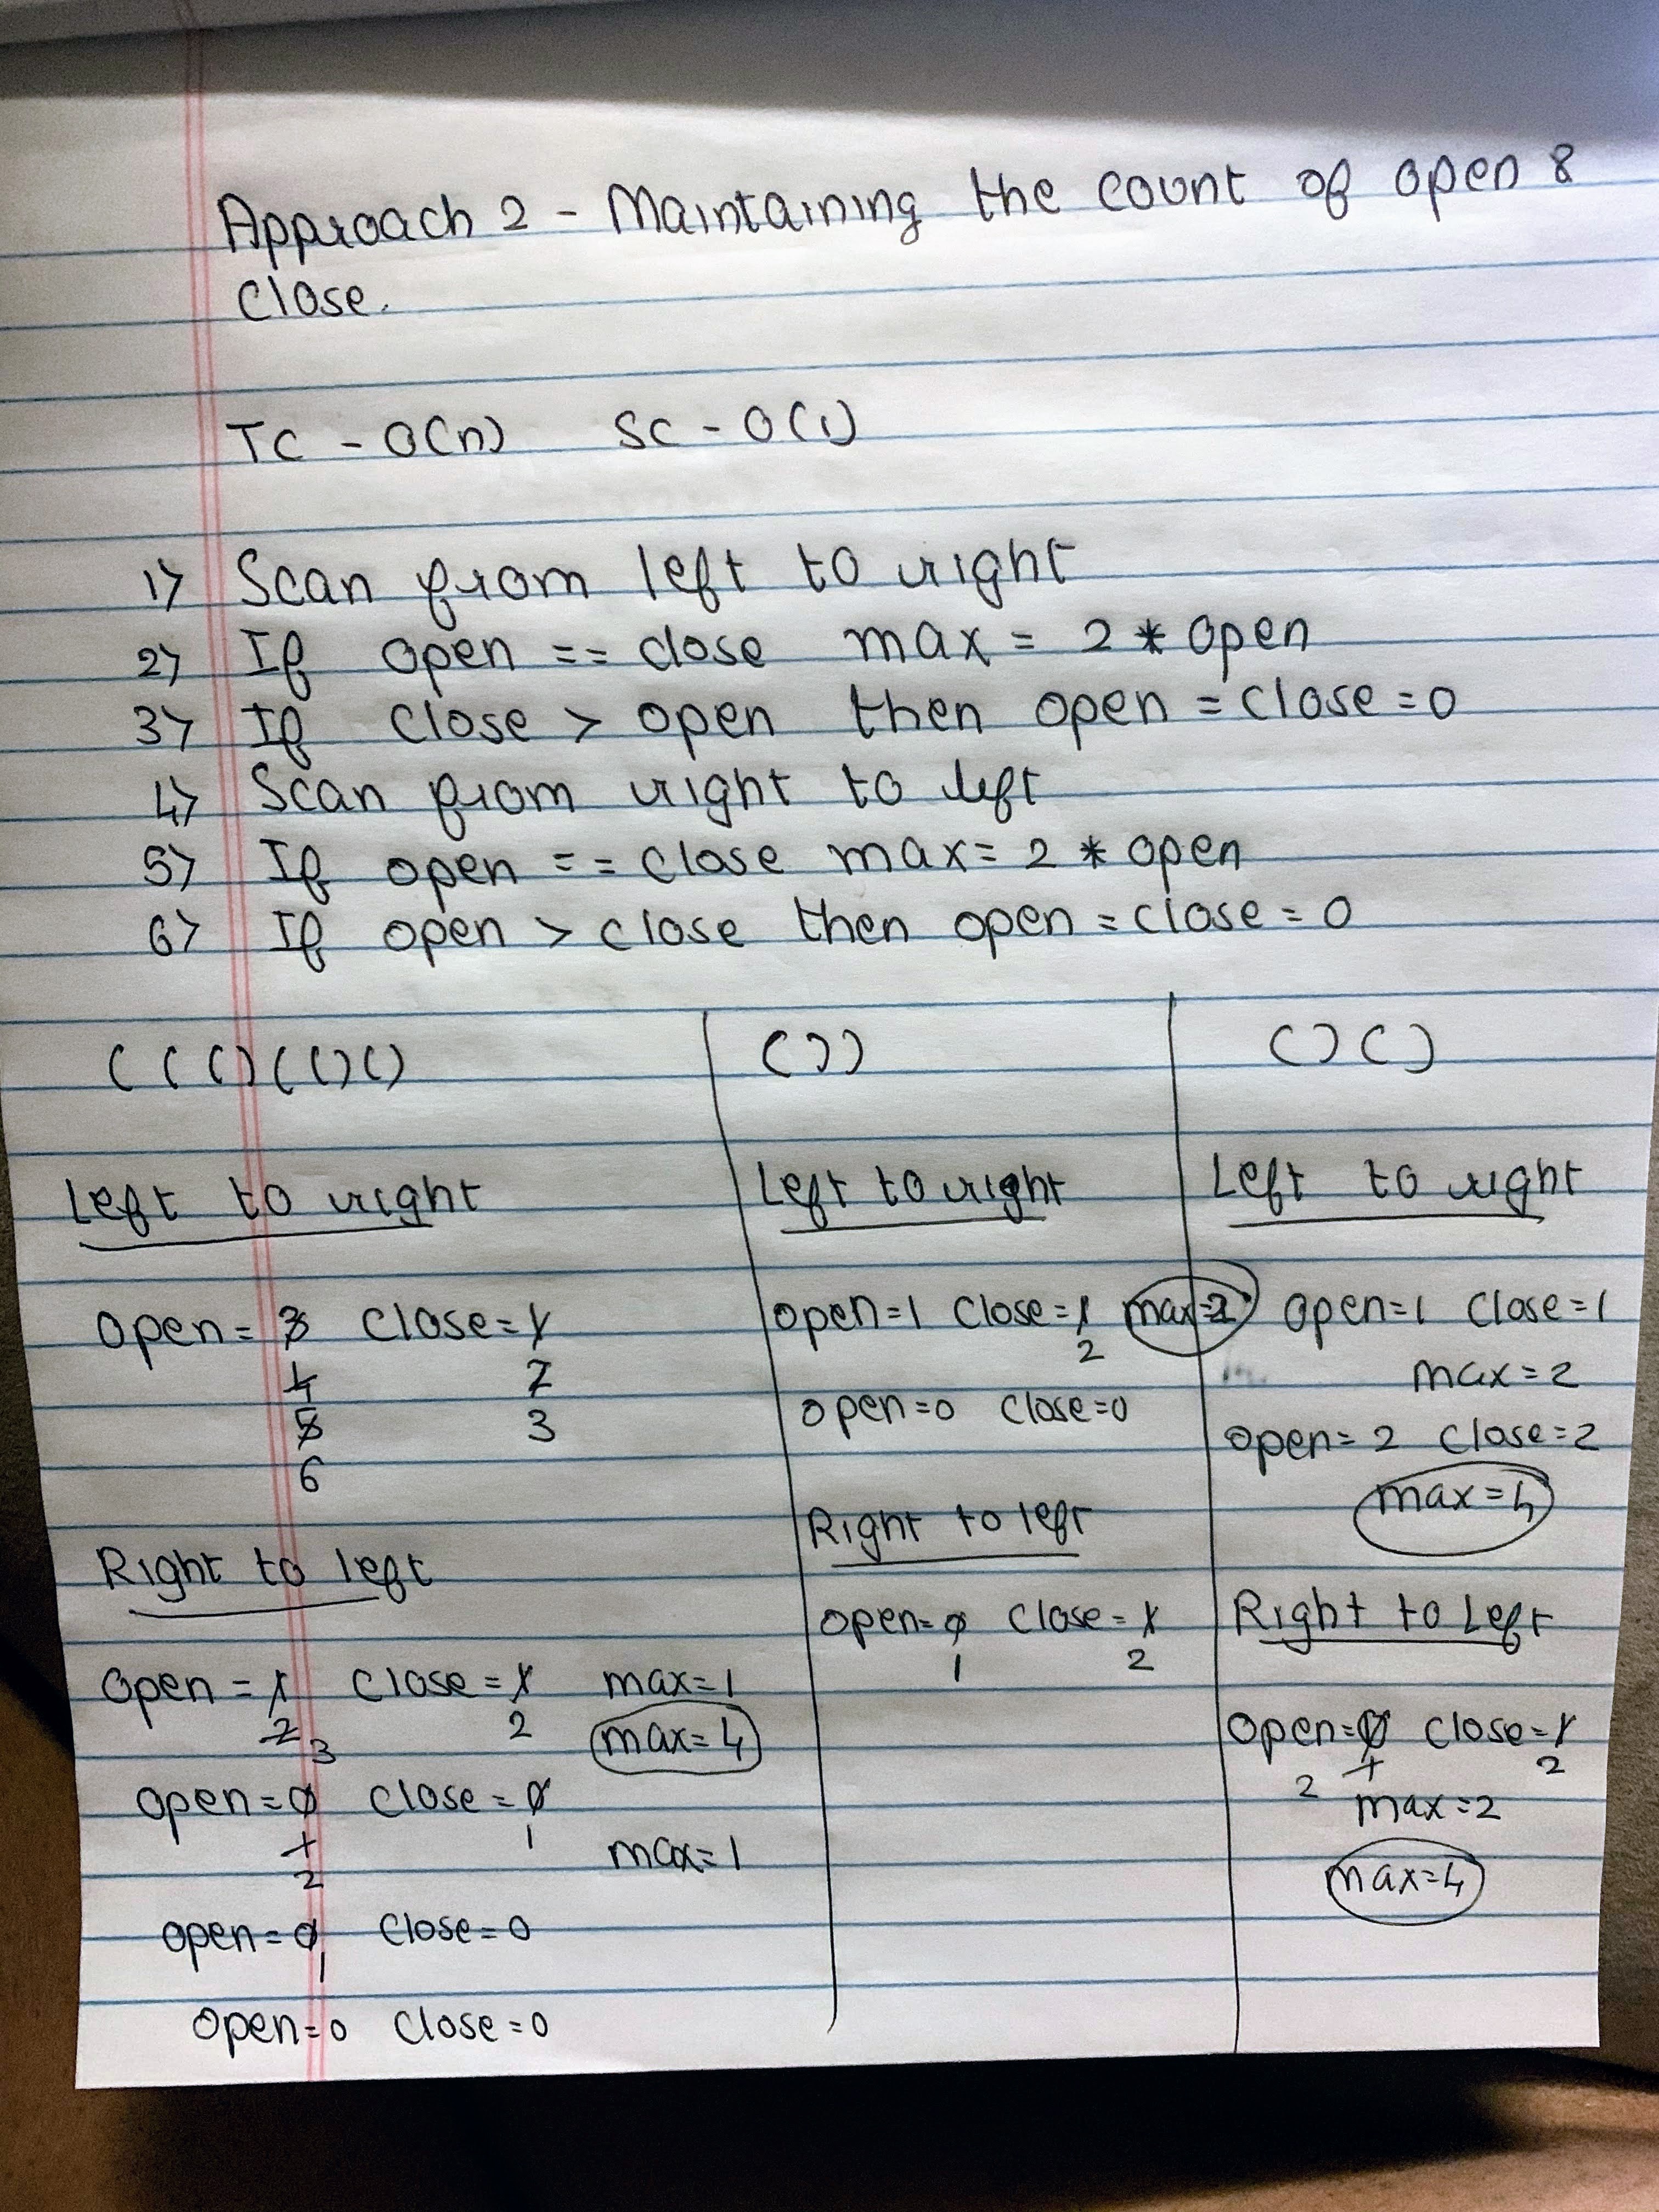 Approach 2 - Maintaining the count of open &
close.
TC - O(n) SC - O(1)
1) Scan from left to right
2) If open == close max = 2 * open
3) If close > open then open = close = 0
4) Scan from right to left
5) If open == close max = 2 * open
6) If open > close then open = close = 0
( ( ( ) ( ( ) ( )
Left to right
Open = 3 Close = 1
4 2
5 3
6
Right to left
Open = 1 Close = 1 max = 1
2 3 2 max = 4
Open = 0 Close = 0
1 1 max = 1
2
open = 0 Close = 0
1
Open = 0 Close = 0
( ) )
Left to right
Open = 1 Close = 1 max = 2
2
open = 0 Close = 0
Right to left
Open = 0 Close = 1
1 2
( ) ( )
Left to right
Open = 1 Close = 1
max = 2
Open = 2 Close = 2
max = 4
Right to Left
Open = 0 Close = 1
1 2
2 max = 2
max = 4